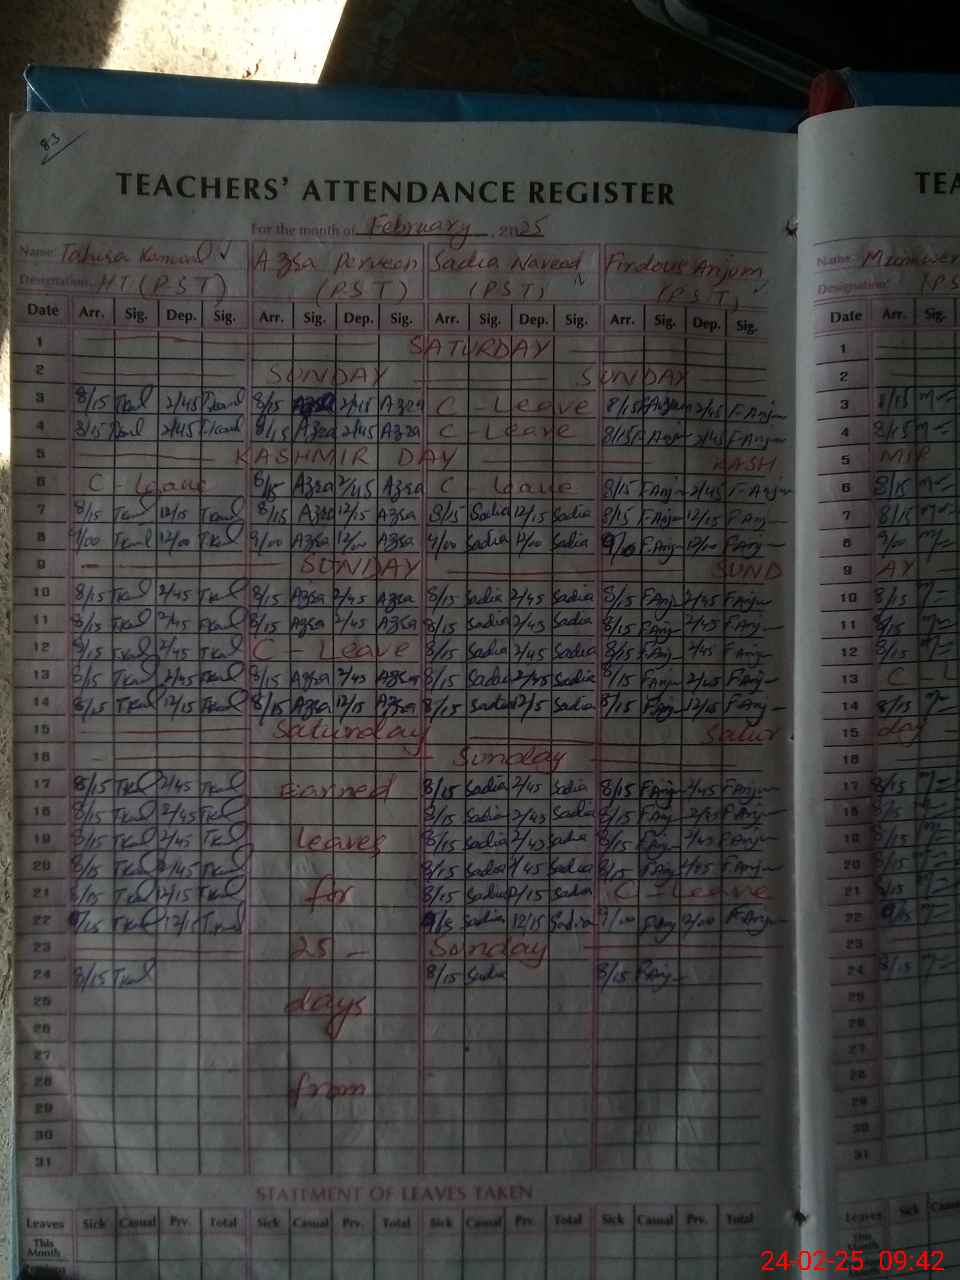 83
TEACHERS' ATTENDANCE REGISTER
TEA
For the month of February, 2025
Name: Tahira Kanwal Azra Perveen Sadia Naveed Firdous Anjum
Name:
Designation: HT (PST) (PST) (PST) (PST)
Designation:
Date Arr. Sig. Dep. Sig. Arr. Sig. Dep. Sig. Arr. Sig. Dep. Sig. Arr. Sig. Dep. Sig. Date Arr. Sig.
1 SATURDAY 1
2 SUNDAY SUNDAY 2
3 8/15 2/45 8/15 2/45 Azra C - Leave 8/15 F.Anjum 2/45 F.Anjum 3 8/15
4 8/15 2/45 8/15 Azra 2/45 Azra C - Leave 8/15 F.Anjum 2/45 F.Anjum 4 8/15
5 KASHMIR DAY KASH 5 MIR
6 C - Leave 8/15 Azra 2/45 Azra C - Leave 8/15 F.Anjum 2/45 F.Anjum 6 8/15
7 8/15 Tkwl 12/15 Tkwl 8/15 Azra 12/15 Azra 8/15 Sadia 12/15 Sadia 8/15 F.Anj 12/15 F.Anj 7 8/15
8 9/00 Tkwl 12/00 Tkwl 9/00 Azra 12/00 Azra 9/00 Sadia 12/00 Sadia 9/00 F.Anj 12/00 F.Anj 8 9/00
9 SUNDAY SUND 9 AY
10 8/15 Tkwl 2/45 Tkwl 8/15 Azra 2/45 Azra 8/15 Sadia 2/45 Sadia 8/15 F.Anj 2/45 F.Anj 10 8/15
11 8/15 Tkwl 2/45 Tkwl 8/15 Azra 2/45 Azra 8/15 Sadia 2/45 Sadia 8/15 F.Anj 2/45 F.Anj 11 8/15
12 8/15 Tkwl 2/45 Tkwl C - Leave 8/15 Sadia 2/45 Sadia 8/15 F.Anj 2/45 F.Anj 12 8/15
13 8/15 Tkwl 2/45 Tkwl 8/15 Azra 2/45 Azra 8/15 Sadia 2/45 Sadia 8/15 F.Anj 2/45 F.Anj 13 C - L
14 8/15 Tkwl 12/15 Tkwl 8/15 Azra 12/15 Azra 8/15 Sadia 12/15 Sadia 8/15 F.Anj 12/15 F.Anj 14 8/15
15 Saturday Satur 15 day
16 Sunday 16
17 8/15 Tkwl 2/45 Tkwl Earned 8/15 Sadia 2/45 Sadia 8/15 F.Anj 2/45 F.Anjum 17 8/15
18 8/15 Tkwl 2/45 Tkwl 8/15 Sadia 2/45 Sadia 8/15 F.Anj 2/45 F.Anjum 18 8/15
19 8/15 Tkwl 2/45 Tkwl leaves 8/15 Sadia 2/45 Sadia 8/15 F.Anj 2/45 F.Anjum 19 8/15
20 8/15 Tkwl 2/45 Tkwl 8/15 Sadia 2/45 Sadia 8/15 F.Anj 2/45 F.Anjum 20 8/15
21 8/15 Tkwl 12/15 Tkwl for 8/15 Sadia 12/15 Sadia C - Leave 21 8/15
22 9/15 Tkwl 12/15 Tkwl 9/15 Sadia 12/15 Sadia 9/00 F.Anj 12/00 F.Anjum 22 9/15
23 25 - Sunday 23
24 8/15 Tkwl 8/15 Sadia 8/15 F.Anj 24 8/15
25 days 25
26 26
27 27
28 from 28
29 29
30 30
31 31
STATEMENT OF LEAVES TAKEN
Leaves Sick Casual Prv. Total Sick Casual Prv. Total Sick Casual Prv. Total Sick Casual Prv. Total Leaves Sick
This Month This Month
24-02-25 09:42